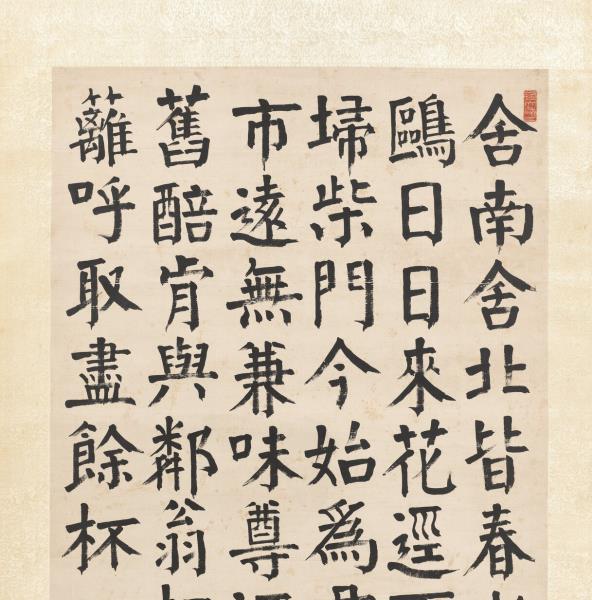 舍南舍北皆春
鷗日日來花逕
埽柴門今始爲
市遠無兼味尊
舊醅肯與鄰翁
蘺呼取盡餘杯